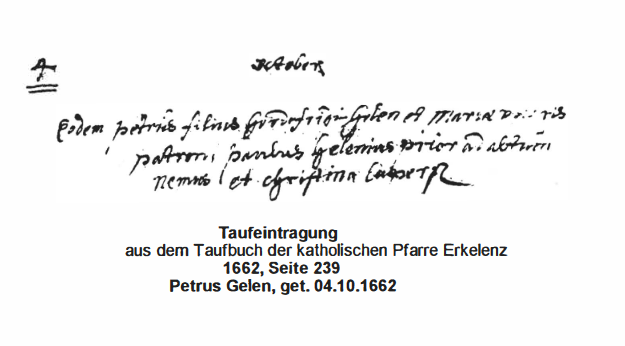 4 october
Eodem petrus filius Gelen et Maria
patroni paulus Gelenius prior
et christina
Taufeintragung
aus dem Taufbuch der katholischen Pfarre Erkelenz
1662, Seite 239
Petrus Gelen, get. 04.10.1662